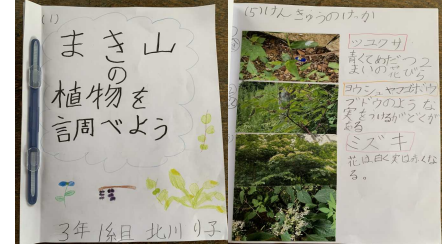 (1)
まきの山
植物を
調べよう
3年1組 北川り子
(5)けんきゅうのけっか
ツユクサ
青くてめだつ2
まいの花びら
ヨウシュヤマゴボウ
ブドウのような
実をつけるがどくが
ある
ミズキ
花は白く実はくろくな
る。